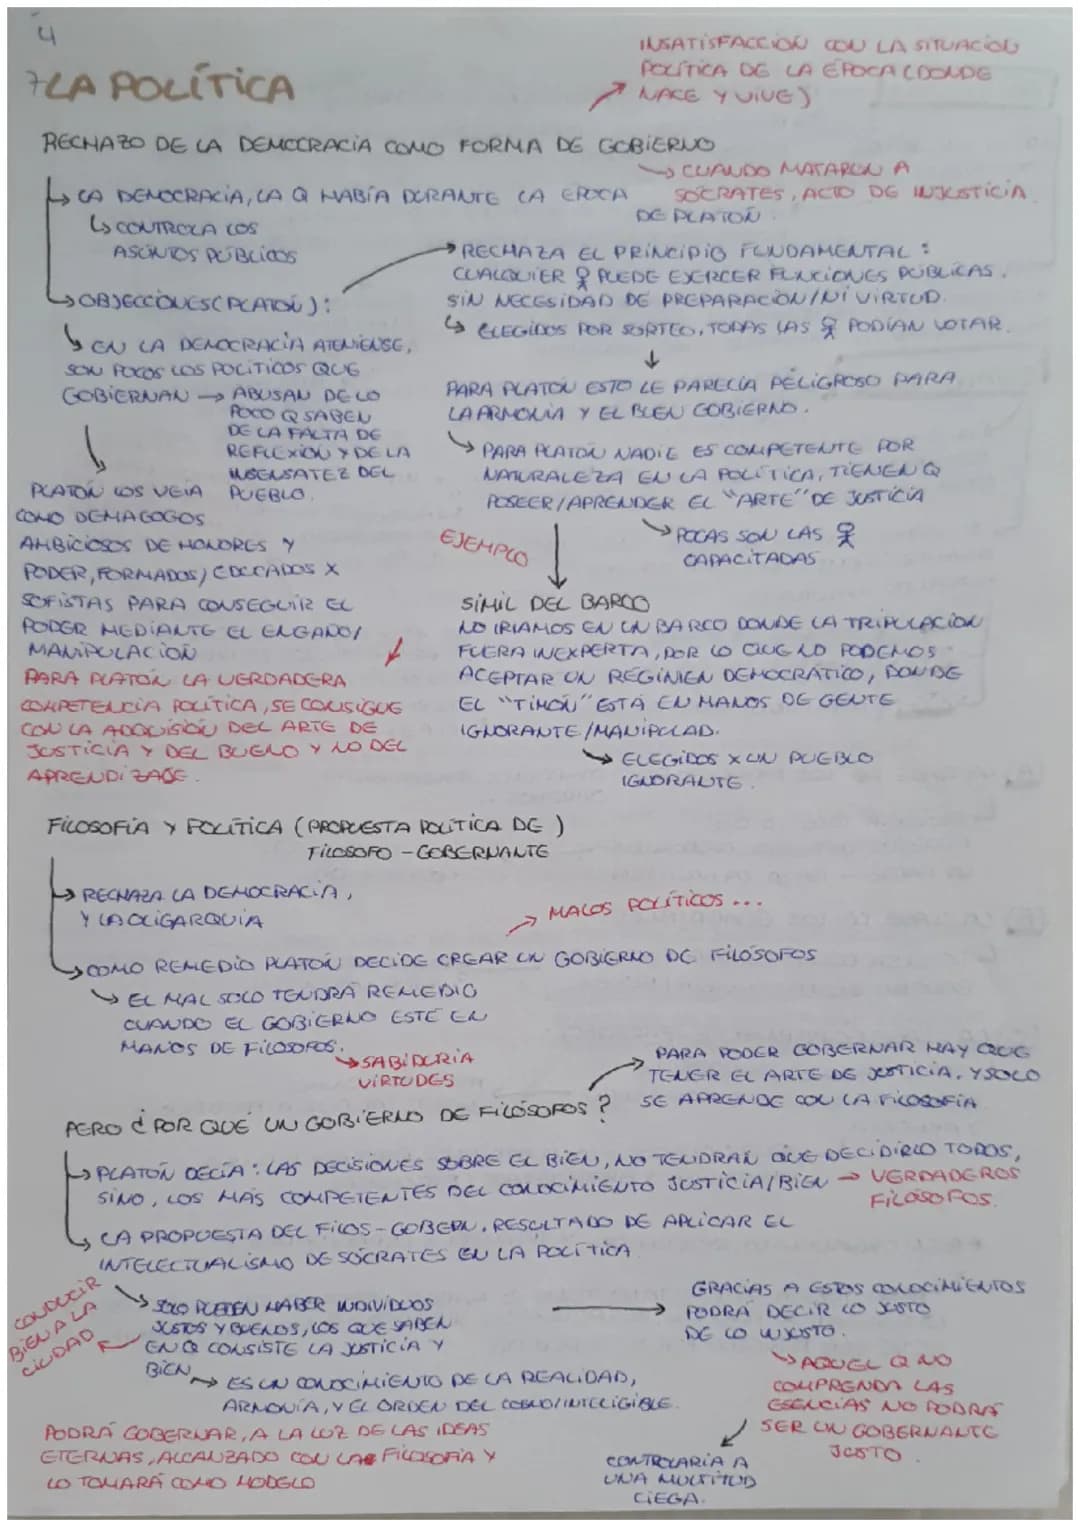 4
7 LA POLÍTICA
INSATISFACCION CON LA SITUACION
POLÍTICA DE LA ÉPOCA (DONDE
NACE Y VIVE)
RECHAZO DE LA DEMOCRACIA COMO FORMA DE GOBIERNO
→ CUANDO MATARON A
SÓCRATES, ACTO DE INJUSTICIA
↳ LA DEMOCRACIA, LA Q HABÍA DURANTE LA EPOCA
DE PLATÓN
↳ CONTROLA LOS
ASUNTOS PÚBLICOS
↳ OBJECCIONES (PLATÓN):
→ RECHAZA EL PRINCIPIO FUNDAMENTAL:
CUALQUIER PUEDE EJERCER FUNCIONES PÚBLICAS,
SIN NECESIDAD DE PREPARACIÓN/NI VIRTUD.
↳ ELEGIDOS POR SORTEO, TODAS LAS PODÍAN VOTAR.
↳ EN LA DEMOCRACIA ATENIENSE,
SON POCOS LOS POLÍTICOS QUE
GOBIERNAN → ABUSAN DE LO
POCO Q SABEN
DE LA FALTA DE
REFLEXIÓN Y DE LA
INSENSATEZ DEL
PUEBLO.
PLATÓN LOS VEIA
COMO DEMAGOGOS
AMBICIOSOS DE HONORES Y
PODER, FORMADOS/EDUCADOS X
SOFISTAS PARA CONSEGUIR EL
PODER MEDIANTE EL ENGAÑO/
MANIPULACIÓN
PARA PLATÓN LA VERDADERA
COMPETENCIA POLÍTICA, SE CONSIGUE
CON LA ADQUISIÓN DEL ARTE DE
JUSTICIA Y DEL BUENO Y NO DEL
APRENDIZAGE.
PARA PLATÓN ESTO LE PARECÍA PELIGROSO PARA
LA ARMONÍA Y EL BUEN GOBIERNO.
↳ PARA PLATÓN NADIE ES COMPETENTE POR
NATURALEZA EN LA POLÍTICA, TIENEN Q
POSEER/APRENDER EL "ARTE" DE JUSTICIA
↳ POCAS SON LAS
CAPACITADAS
EJEMPLO
SÍMIL DEL BARCO
NO IRÍAMOS EN UN BARCO DONDE LA TRIPULACIÓN
FUERA INEXPERTA, POR LO QUE NO PODEMOS
ACEPTAR UN REGIMEN DEMOCRÁTICO, DONDE
EL "TIMÓN" ESTÁ EN MANOS DE GENTE
IGNORANTE/MANIPULAD.
→ ELEGIDOS X UN PUEBLO
IGNORANTE.
FILOSOFÍA Y POLÍTICA (PROPUESTA POLÍTICA DE)
FILOSOFO-GOBERNANTE
↳ RECHAZA LA DEMOCRACIA,
Y LA OLIGARQUÍA
→ MALOS POLÍTICOS...
↳ COMO REMEDIO PLATÓN DECIDE CREAR UN GOBIERNO DE FILÓSOFOS
↳ EL MAL SOLO TENDRÁ REMEDIO
CUANDO EL GOBIERNO ESTE EN
MANOS DE FILOSOFOS.
→ SABIDURÍA
VIRTUDES
PERO ¿POR QUÉ UN GOBIERNO DE FILÓSOFOS?
→ PARA PODER GOBERNAR HAY QUE
TENER EL ARTE DE JUSTICIA, Y SOLO
SE APRENDE CON LA FILOSOFÍA
↳ PLATÓN DECÍA: LAS DECISIONES SOBRE EL BIEN, NO TENDRÁN QUE DECIDIRLO TODOS,
SINO, LOS MÁS COMPETENTES DEL CONOCIMIENTO JUSTICIA/BIEN → VERDADEROS
FILÓSOFOS.
↳ LA PROPUESTA DEL FILOS-GOBERN. RESULTADO DE APLICAR EL
INTELECTUALISMO DE SÓCRATES EN LA POLÍTICA
↳ SOLO PUEDEN HABER INDIVIDUOS
JUSTOS Y BUENOS, LOS QUE SABEN
EN Q CONSISTE LA JUSTICIA Y
BIEN
CONDUCIR
BIEN A LA
CIUDAD
→ ES UN CONOCIMIENTO DE LA REALIDAD,
ARMONÍA, Y EL ORDEN DEL COSMO/INTELIGIBLE.
PODRÁ GOBERNAR, A LA LUZ DE LAS IDEAS
ETERNAS, ALCANZADO CON LA FILOSOFÍA Y
LO TOMARÁ COMO MODELO
→ GRACIAS A ESTOS CONOCIMIENTOS
PODRÁ DECIR LO JUSTO
DE LO INJUSTO.
↳ AQUEL Q NO
COMPRENDA LAS
ESENCIAS NO PODRÁ
SER UN GOBERNANTE
JUSTO.
CONTROLARÍA A
UNA MULTITUD
CIEGA.